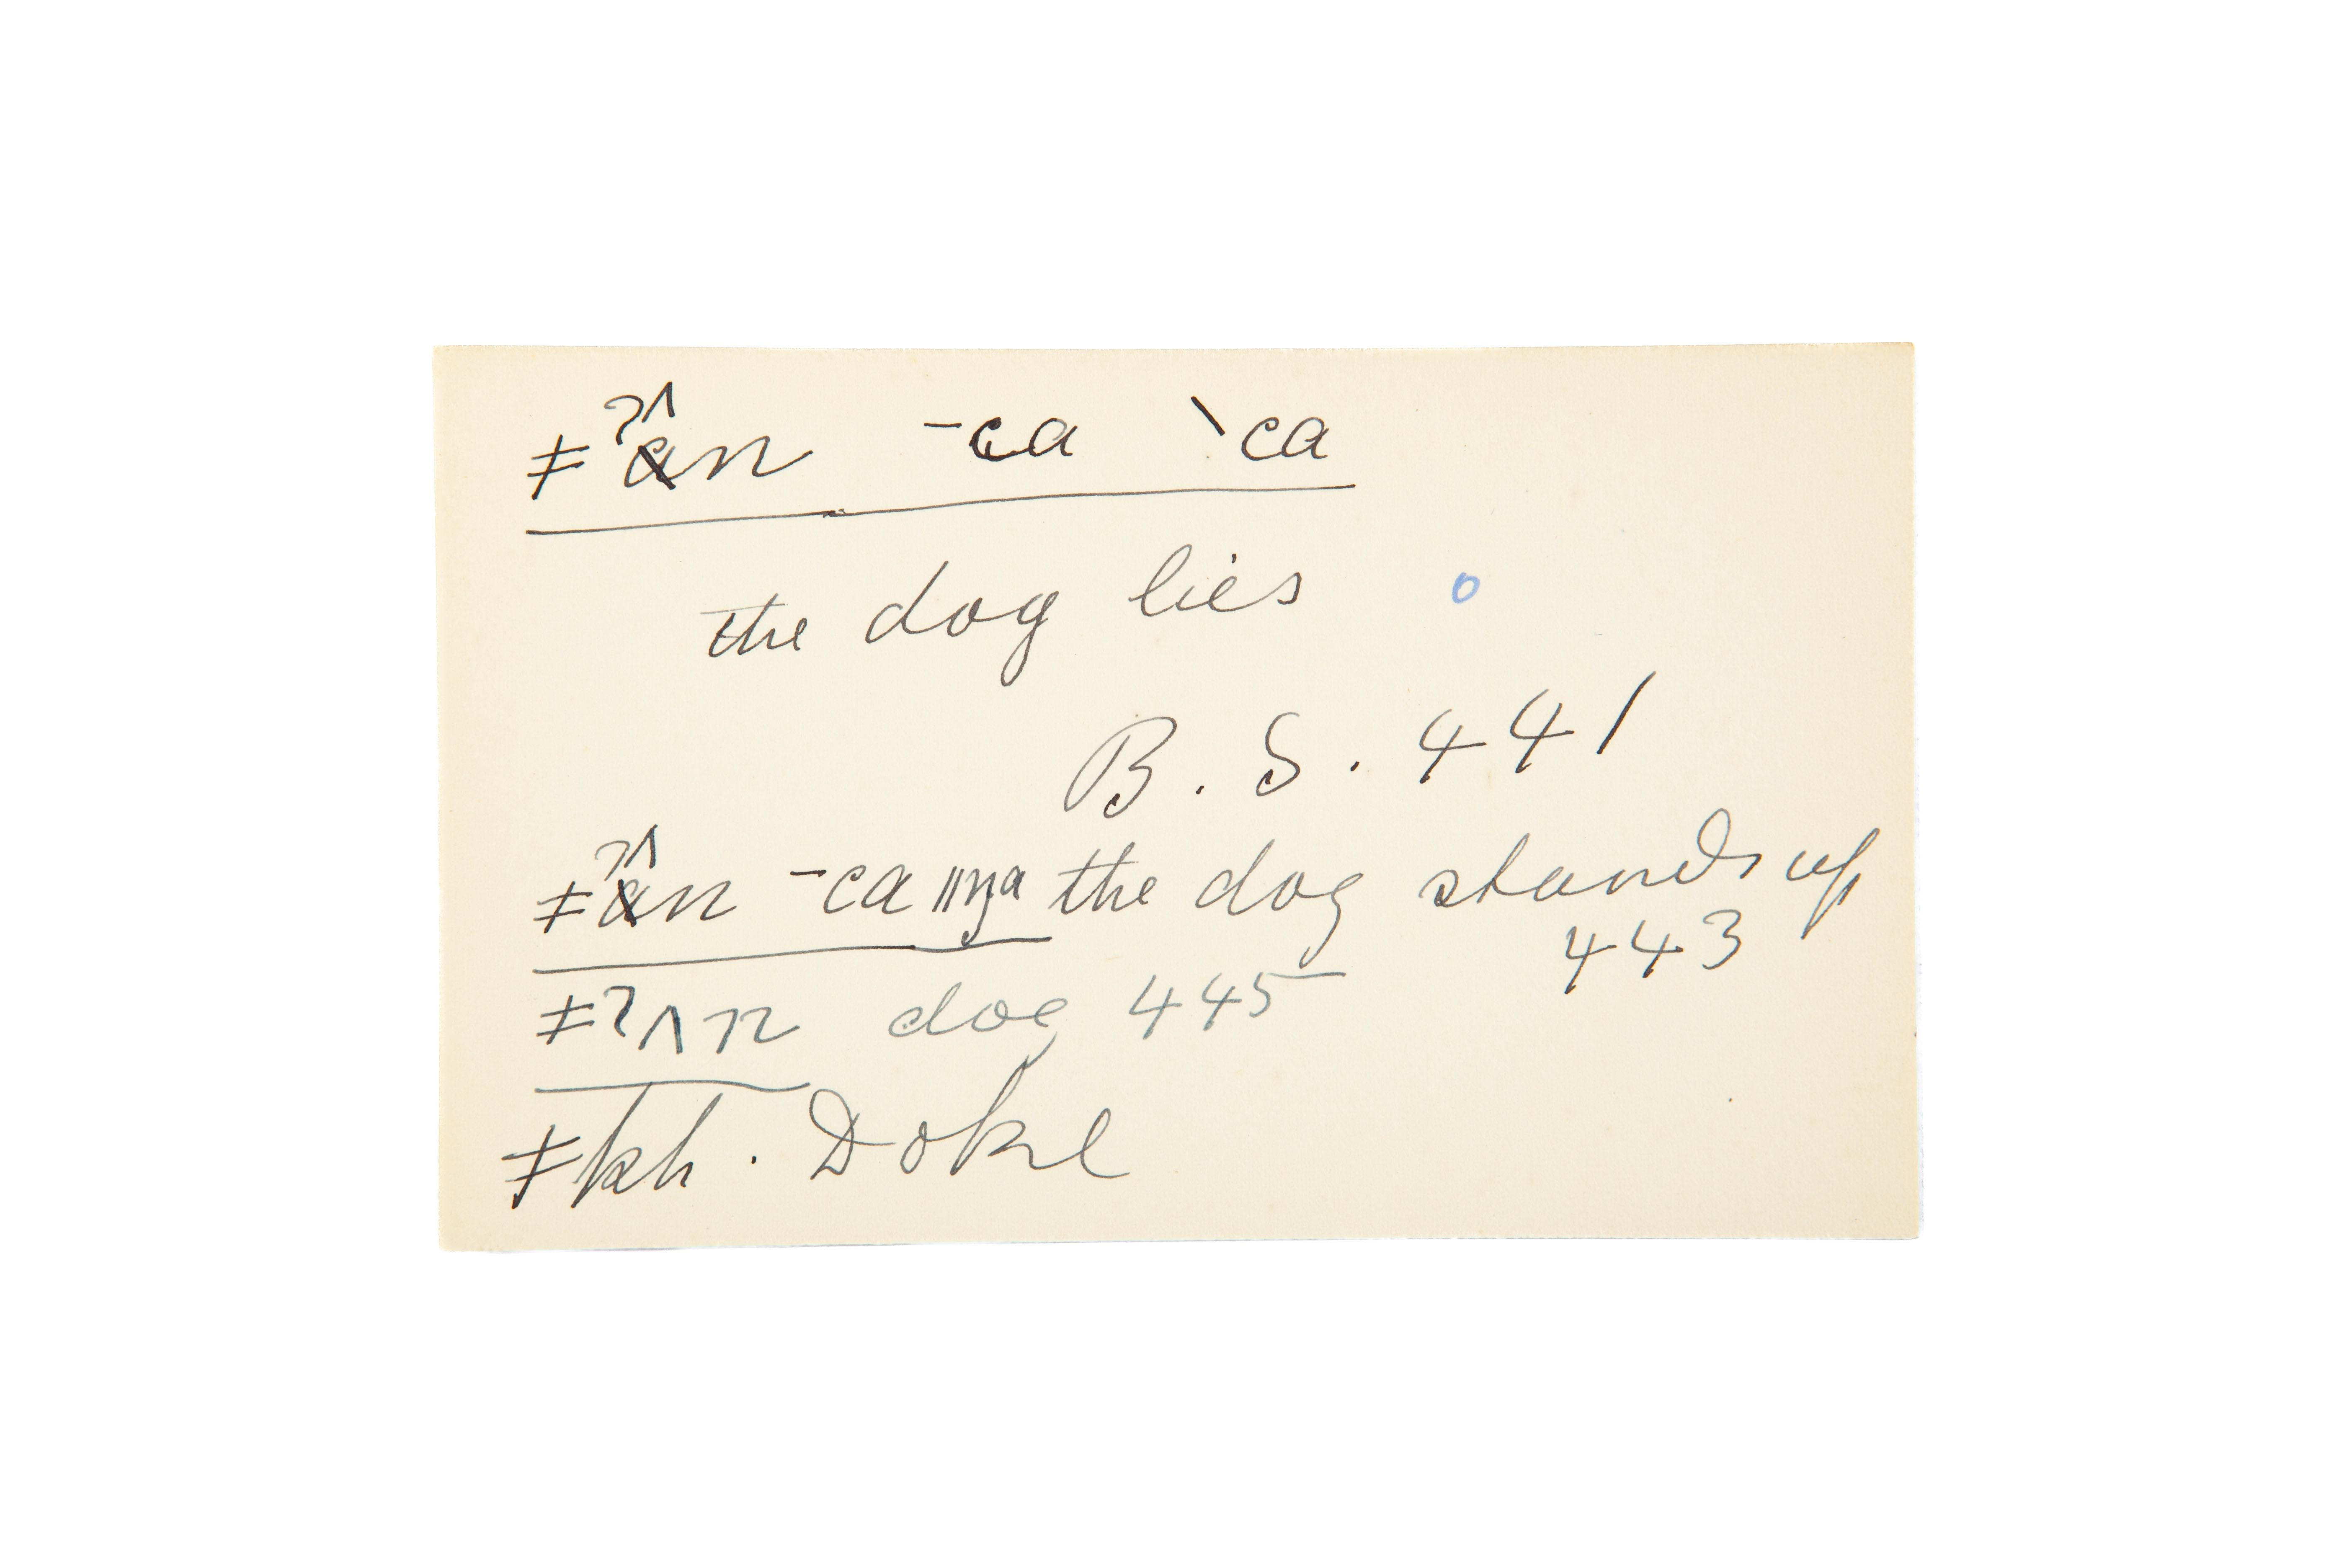 ǂˀʌn ˉca ˋca
the dog lies o
B. S. 441
ǂˀʌn ˉca ǁŋa the dog stands up
443
ǂˀʌn dog 445
ǂkh. Doke